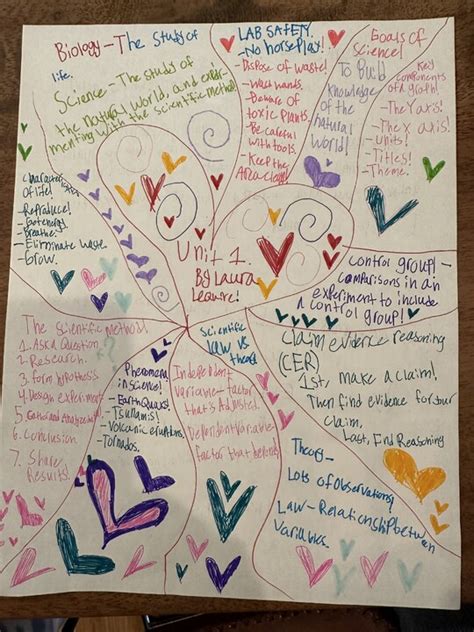 Biology - The study of
life.
Science - The study of
the natural world, and exper-
menting with the scientific method
LAB SAFETY.
- No horse play!
- Dispose of waste!
- Wash hands.
- Beware of
toxic plants.
- Be careful
with tools.
- Keep the
Area clean!
Goals of
science!
To Build
knowledge
of the
natural
world!
Key
components
of a graph!
- The Y axis!
- The X axis!
- Units!
- Titles!
- Theme.
of life!
- Reproduce!
- Breathe.
- Eliminate waste.
- Grow.
Unit 1.
By Laura
control group! -
comparisons in an
experiment to include
a control group!
The Scientific Method
1. Ask a Question
2. Research.
3. form hypothesis
4. Design experiment
6. Conclusion
7. Share
Results!
Phenomena
in science!
- Earth Quaks!
- Tsunamis!
- Volcanic eruptions.
- Tornados.
Scientific
law vs
Independent
Variable - factor
that's Adjusted.
Dependent Variable -
factor that depends
Claim evidence reasoning
(CER)
1st, make a claim!
Then find evidence for your
claim,
Last, Find Reasoning
Theory -
Lots of Observations!
Law - Relationship between
Variables.